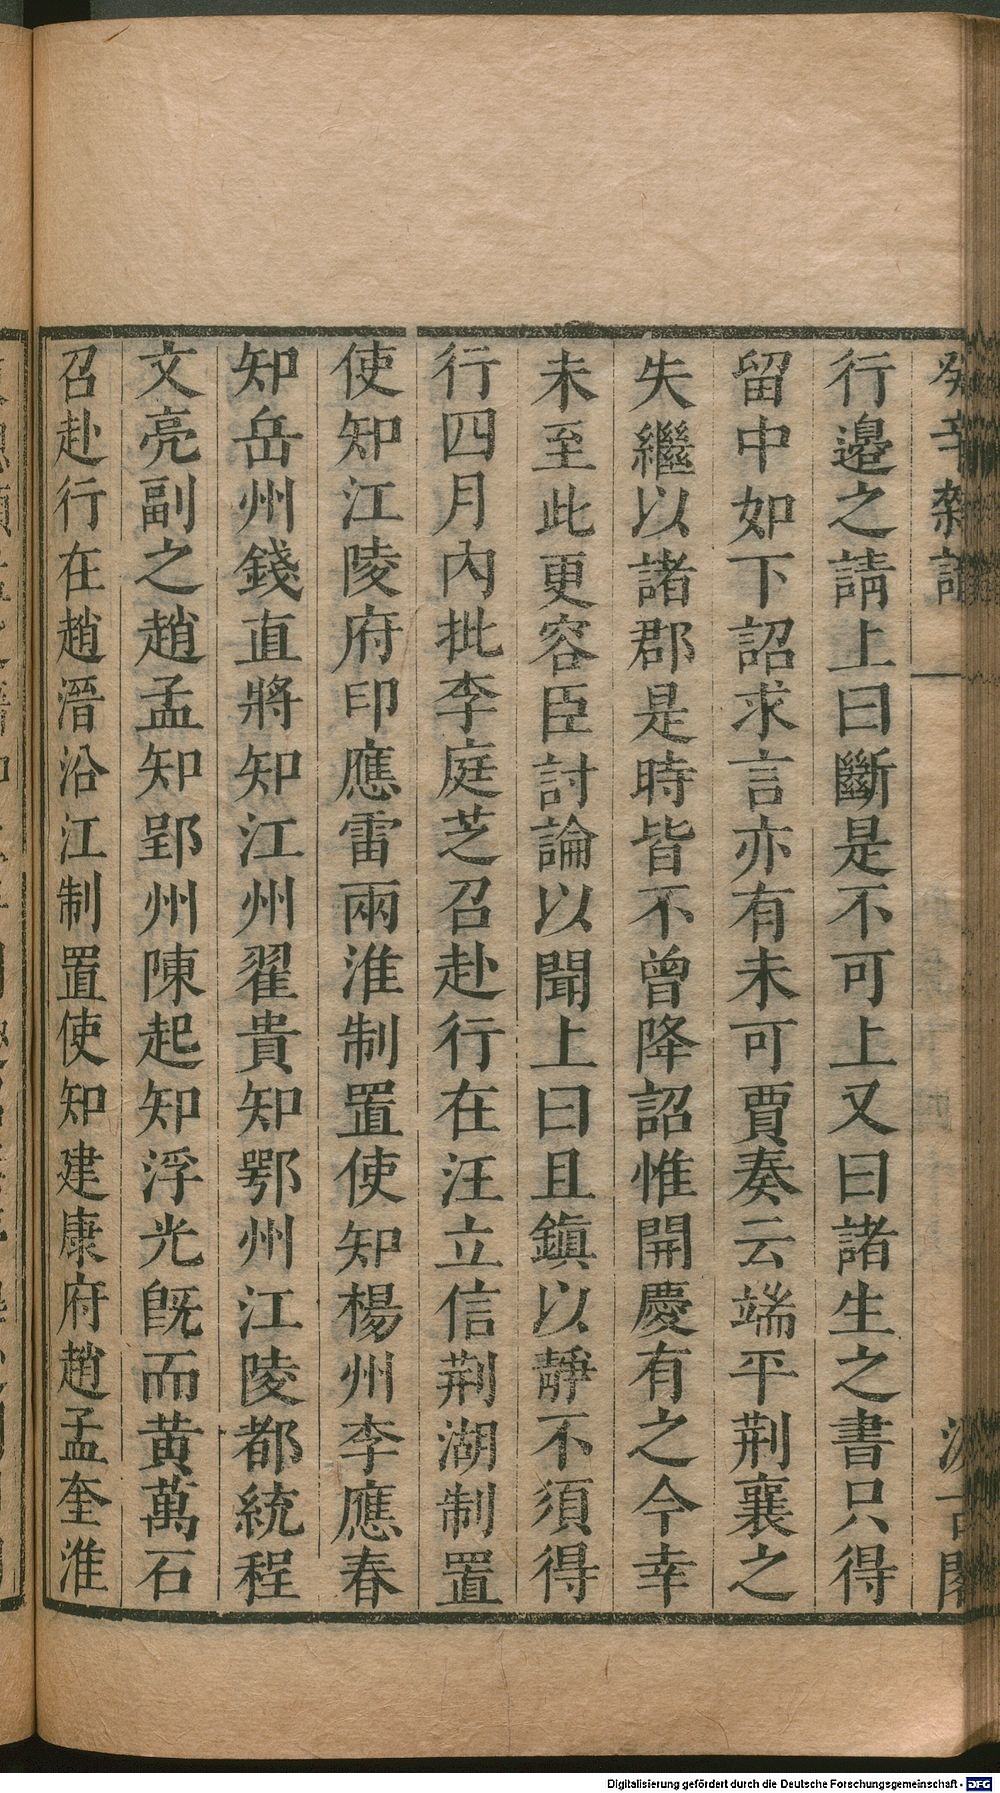 癸辛雜識
汲古閣
行邉之請上曰斷是不可上又曰諸生之書只得
留中如下詔求言亦有未可賈奏云端平荆襄之
失繼以諸郡是時皆不曾降詔惟開慶有之今幸
未至此更容臣討論以聞上曰且鎮以靜不須得
行四月內批李庭芝召赴行在汪立信荆湖制置
使知江陵府印應雷兩淮制置使知楊州李應春
知岳州錢直將知江州翟貴知鄂州江陵都統程
文亮副之趙孟知郢州陳起知浮光旣而黄萬石
召赴行在趙溍沿江制置使知建康府趙孟奎淮
Digitalisierung gefördert durch die Deutsche Forschungsgemeinschaft - DFG